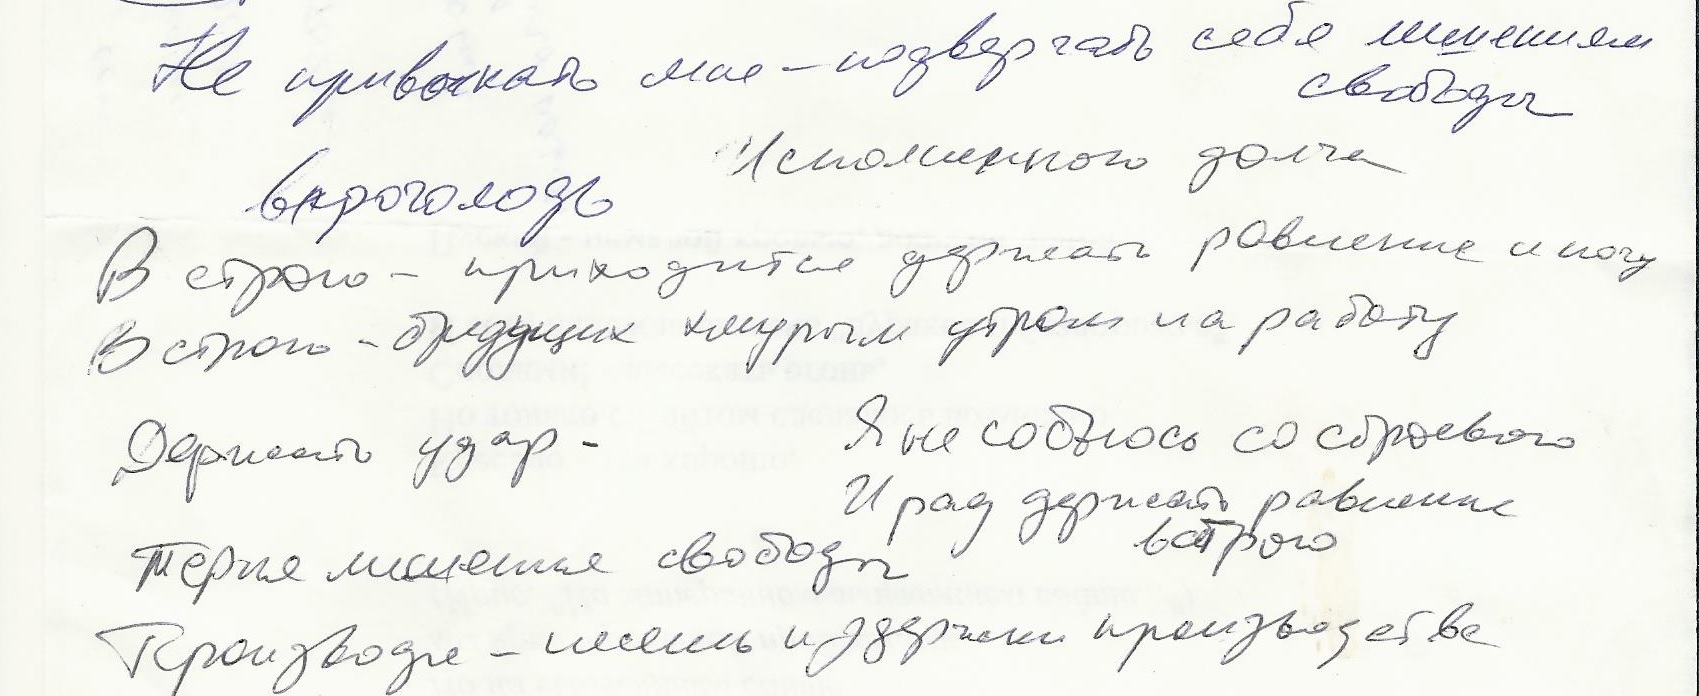 Не привыкать мне – подвергать себя лишениям
свободы
Исполненного долга
впроголодь
В строю – приходится держать равнение и ногу
В строю – бредущих хмурым утром на работу
Держать удар – Я не собьюсь со строевого
И рад держать равнение
в строю
Терпя лишения свободы
Производя – и издержки производства